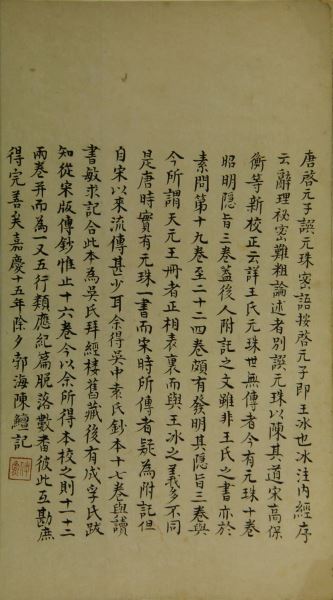 唐啓元子譔玄珠密語按啓元子即王冰也冰注內經序
云辭理祕密難粗論述者別譔玄珠以陳其道宋高保
衡等新校正云詳王氏玄珠世無傳者今有元珠十卷
昭明隱旨三卷蓋後人附託之文雖非王氏之書亦於
素問第十九卷至二十四卷頗有發明其隱旨三卷與
今所謂天元玉冊者正相表裏而與王冰之義多不同
是唐時實有元珠一書而宋時所傳者疑為附託但
自宋以來流傳甚少耳余得吳中袁氏鈔本十七卷與讀
書敏求記合此本為吳氏拜經樓舊藏後有成孚氏跋
知從宋版傳鈔惟止十六卷今以余所得本校之則十一十二
兩卷并而為一又五行類應紀篇脫落數番彼此互勘庶
得完善矣嘉慶十五年除夕郭海陳鱣記